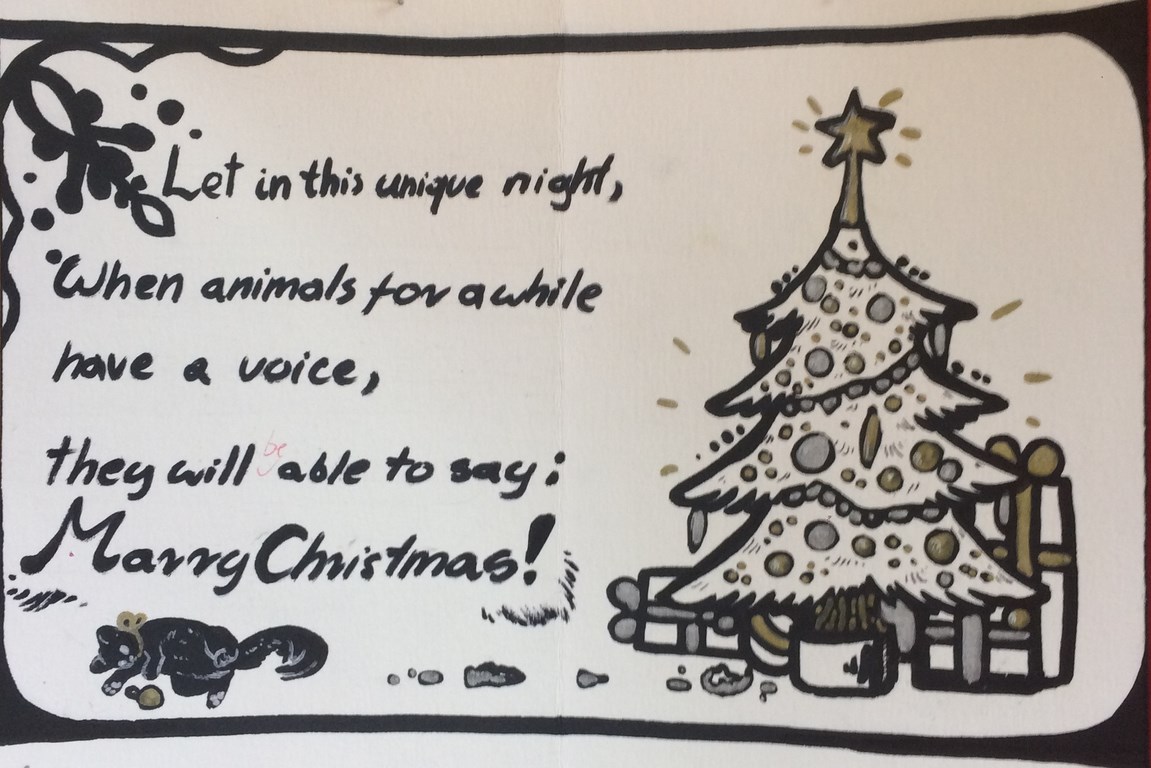 Let in this unique night,
When animals for a while
have a voice,
they will be able to say:
Marry Christmas!